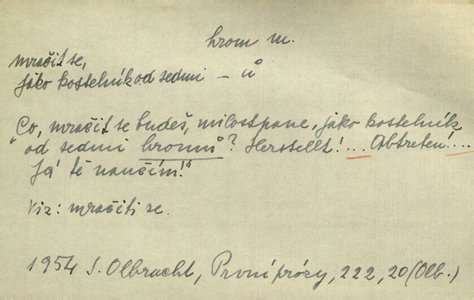 hrom m.
mračit se,
jako kostelník od sedmi – ů
"Co, mračit se budeš, milostpane, jako kostelník
od sedmi hromů? Herstellt!... Abtreten...
Já tě naučím!"
Viz: mračiti se.
1954 I. Olbracht, První prózy, 222, 20 (Olb.)